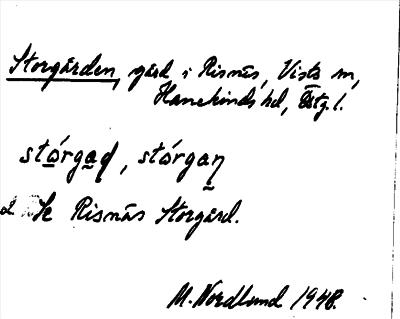 Storgården, gård i Risnäs, Vists sn,
Hanekinds hd, Östg l.
stórgad, stórgaɳ
Se Risnäs Storgård.
M. Nordlund 1948.